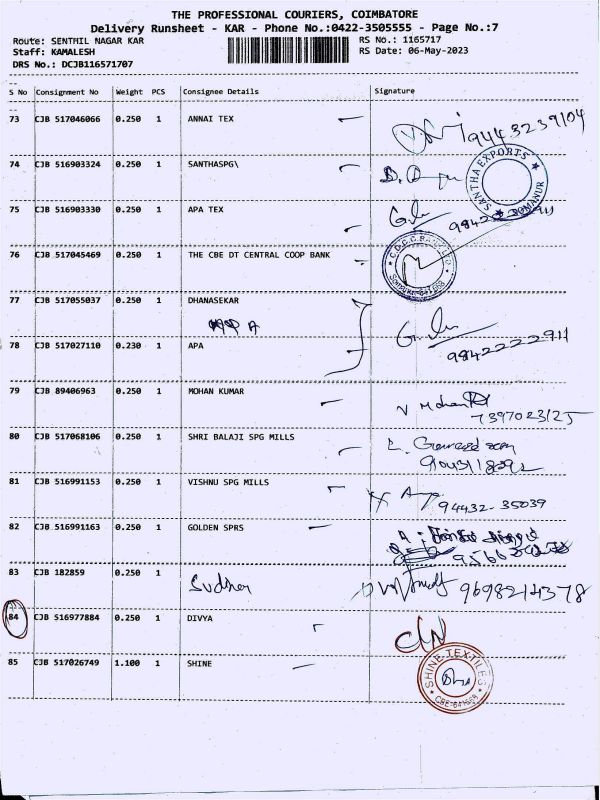 THE PROFESSIONAL COURIERS, COIMBATORE
Delivery Runsheet - KAR - Phone No.:0422-3505555 - Page No.:7
Route: SENTHIL NAGAR KAR
RS No.: 1165717
Staff: KAMALESH
RS Date: 06-May-2023
DRS No.: DCJB116571707
S No Consignment No Weight PCS Consignee Details Signature
73 CJB 517046066 0.250 1 ANNAI TEX
9443239104
74 CJB 516903324 0.250 1 SANTHASPG\
SANTHA EXPORTS
SOMANUR
75 CJB 516903330 0.250 1 APA TEX
76 CJB 517045469 0.250 1 THE CBE DT CENTRAL COOP BANK
77 CJB 517055037 0.250 1 DHANASEKAR
78 CJB 517027110 0.230 1 APA
9842222911
79 CJB 89406963 0.250 1 MOHAN KUMAR
7397023125
80 CJB 517068106 0.250 1 SHRI BALAJI SPG MILLS
81 CJB 516991153 0.250 1 VISHNU SPG MILLS
94432-35039
82 CJB 516991163 0.250 1 GOLDEN SPRS
83 CJB 182859 0.250 1
9698214378
84 CJB 516977884 0.250 1 DIVYA
85 CJB 517026749 1.100 1 SHINE
SHINE TEXTILES